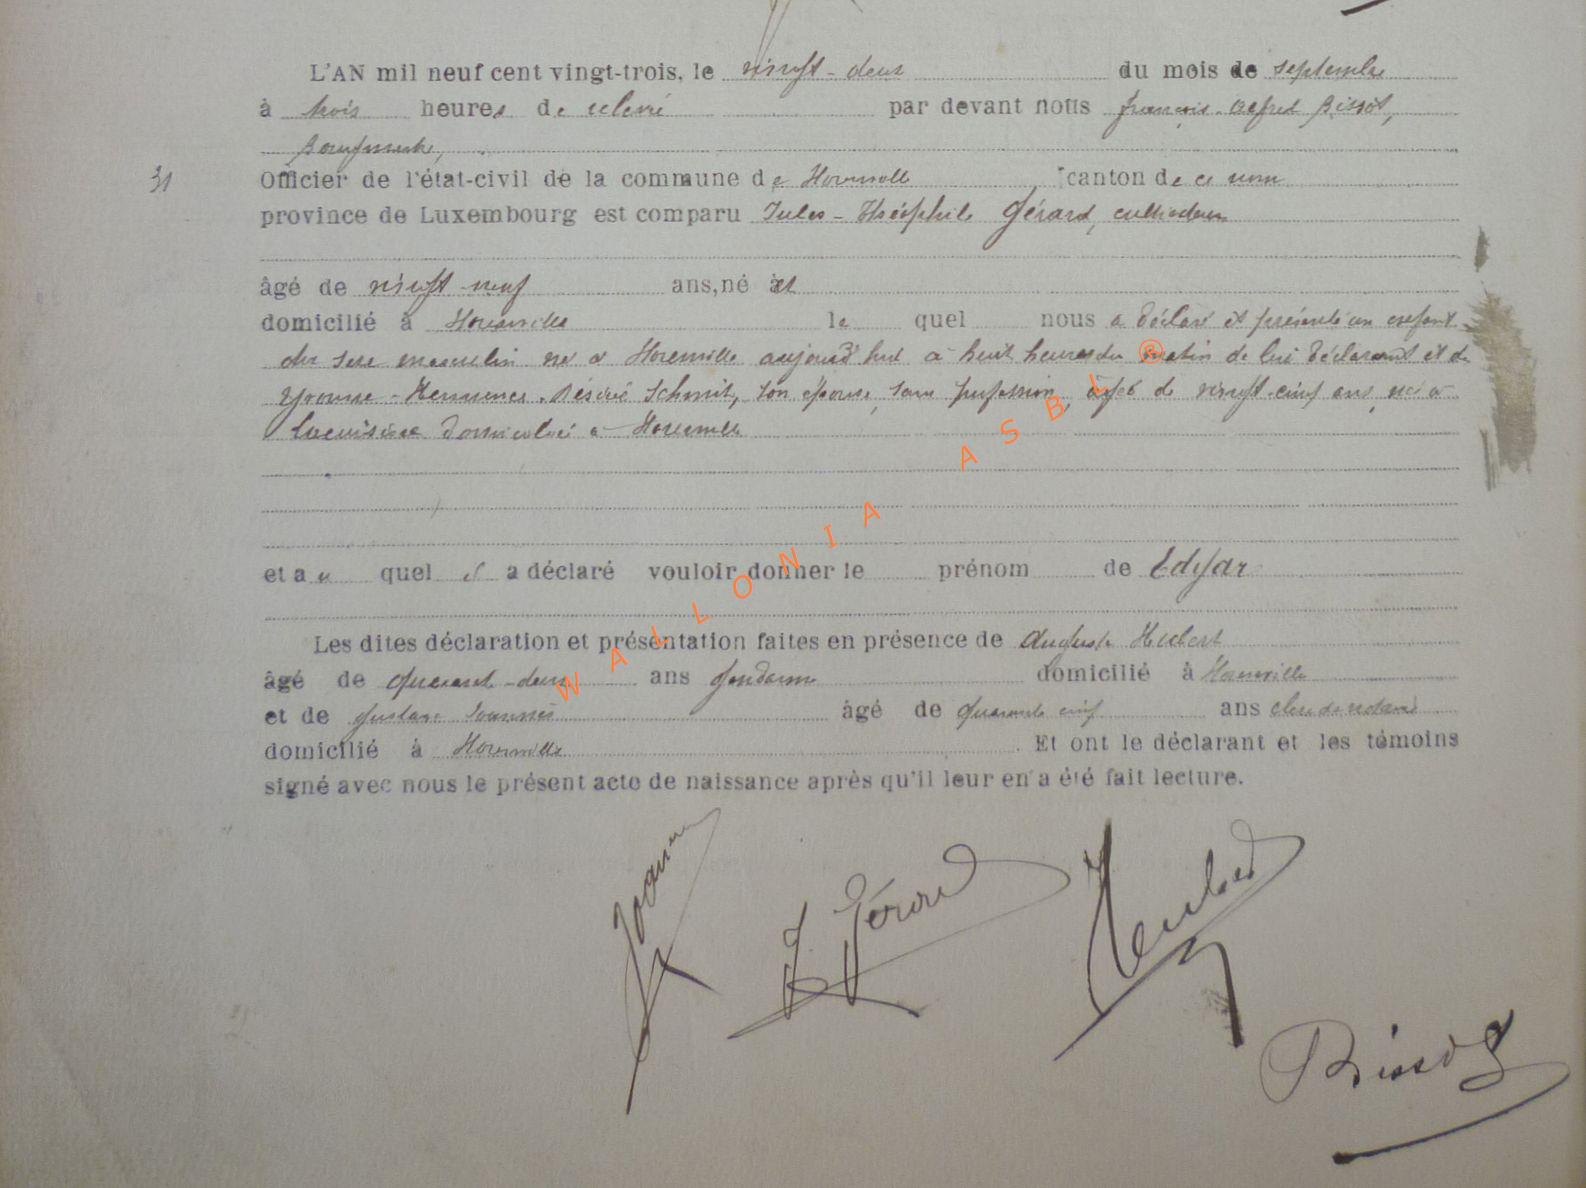 L'AN mil neuf cent vingt-trois, le vingt-deux du mois de septembre
à trois heures de relevé par devant nous françois-alfred Bissot,
Bourgmestre,
31
Officier de l'état-civil de la commune de Houmolle canton de ce nom
province de Luxembourg est comparu Jules-Théophile Gérard, cultivateur
âgé de vingt-neuf ans, né et
domicilié à le quel nous a déclaré et présenté un enfant
du sexe masculin né à aujourd'hui à huit heures du matin de lui déclarant et de
Yvonne-Hermence-Désiré Schmit, son épouse, sans profession, âgée de vingt-cinq ans, née à
domicilié à
et au quel il a déclaré vouloir donner le prénom de Edgar
Les dites déclaration et présentation faites en présence de Auguste Hubert
âgé de quarante-deux ans gendarme domicilié à
et de gustave Joannès âgé de quarante cinq ans clerc de notaire
domicilié à . Et ont le déclarant et les témoins
signé avec nous le présent acte de naissance après qu'il leur en a été fait lecture.
WALLONIA ASBL ®
J Gérard
Hubert
Bissot